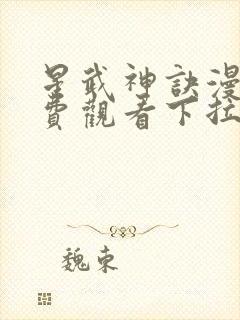 星武神訣漫
費觀看下拉
魏東